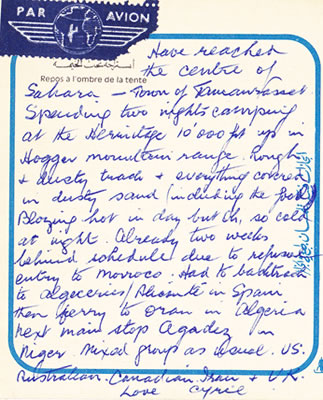 PAR AVION
Repos à l'ombre de la tente
Have reached
the centre of
Sahara - Town of Tamanrasset
Spending two nights camping
at the Hermitage 10 000 ft up in
Hoggar mountain range. Rough
& dusty track & everything covered
in dusty sand (including the food
Blazing hot in day but oh, so cold
at night. Already two weeks
behind schedule due to refused
entry to Morroco. Had to backtrack
to Algeceries/Alicante in Spain
then ferry to Oran in Algeria
next main stop Agadez in
Niger. Mixed group as usual. US.
Australian. Canadian, Iran & U.K.
Love Cyril